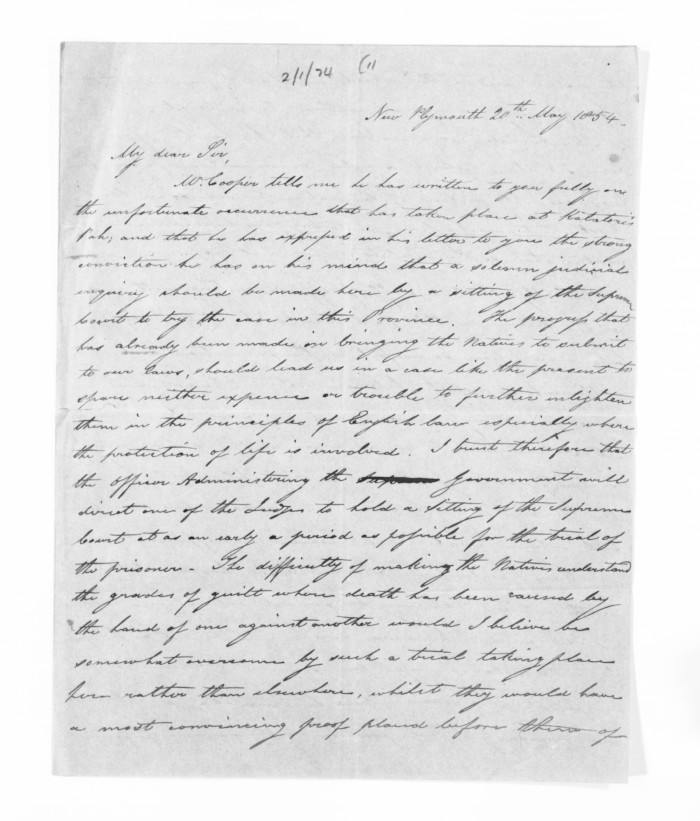 2/1/24 (1)
New Plymouth 20th May 1854
My dear Sir,
Mr. Cooper tells me he has written to you fully on
the unfortunate occurrence that has taken place at Katatore's
Pah, and that he has expressed in his letter to you the strong
conviction he has on his mind that a solemn judicial
inquiry should be made here by a sitting of the Supreme
Court to try the case in this Province. The progress that
has already been made in bringing the Natives to submit
to our laws, should lead us in a case like the present to
spare neither expence or trouble to further enlighten
them in the principles of English law especially where
the protection of life is involved. I trust therefore that
the Officer Administering the Government will
direct one of the Judges to hold a Sitting of the Supreme
Court at as an early a period as possible for the trial of
the prisoner - The difficulty of making the Natives understand
the grades of guilt where death has been caused by
the hand of one against another would I believe be
somewhat overcome by such a trial taking place
here rather than elsewhere, whilst they would have
a most convincing proof placed before them of